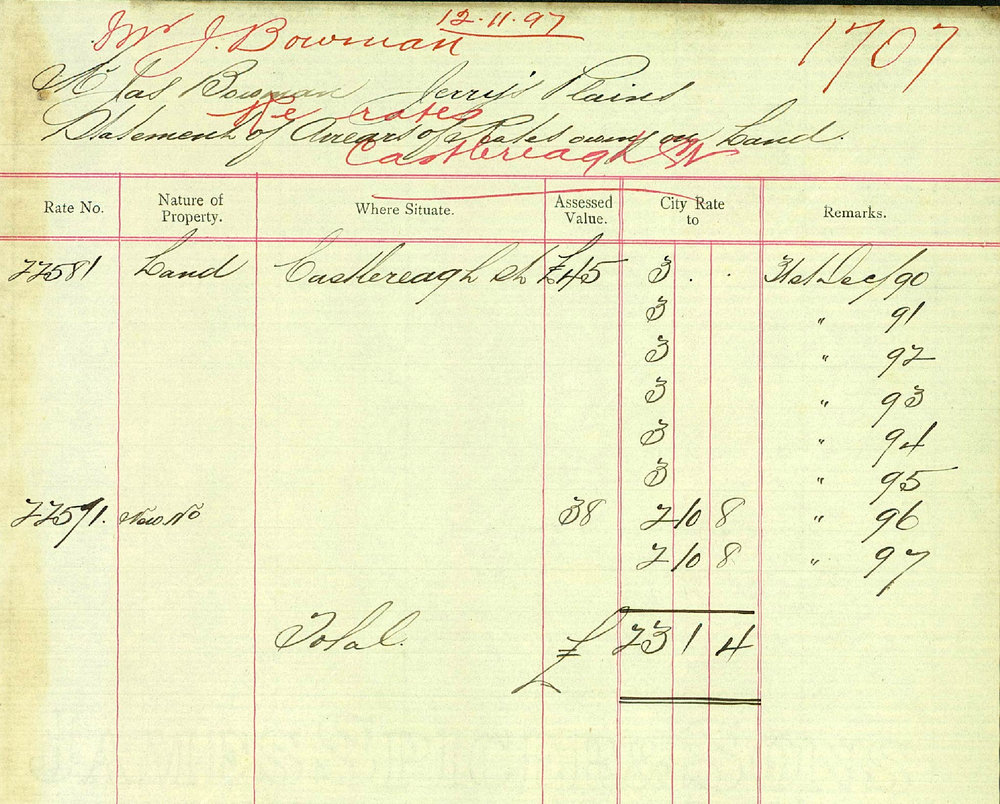 12.11.97
Mr J. Bowman
1707
Mr Jas Bowman Jerry's Plains
Re rates
Statement of Arrears of Rates owing on Land.
Castlereagh St
Rate No. Nature of Property. Where Situate. Assessed Value. City Rate to Remarks.
22581 Land Castlereagh St £45 3 . . 31st Dec/90
3 " 91
3 " 92
3 " 93
3 " 94
3 " 95
22571. New No 38 2 10 8 " 96
2 10 8 " 97
Total. £ 23 1 4